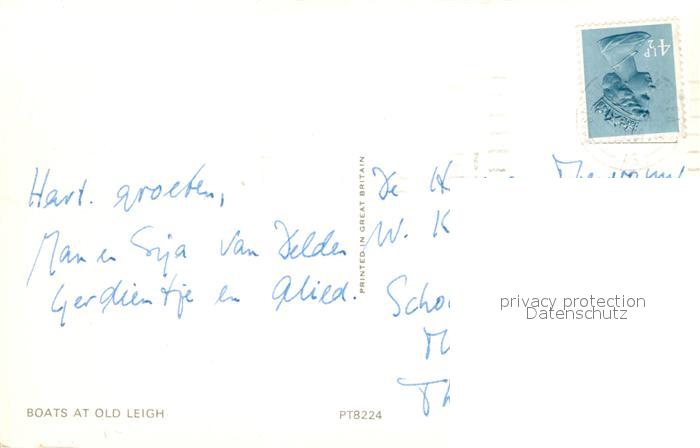 Hart. groeten,
Man en Sija van Delden
Gerdientje en Alied.
PRINTED IN GREAT BRITAIN
4½P
De H
W. K
Scho
M
Th
privacy protection
Datenschutz
BOATS AT OLD LEIGH
PT8224